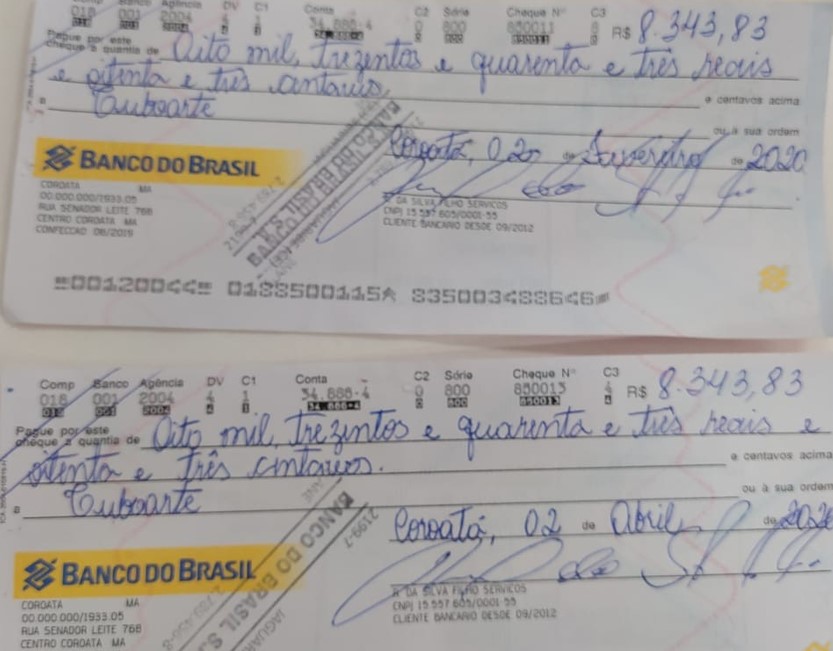 Comp Banco Agência DV C1 Conta C2 Série Cheque Nº C3
018 001 2004 4 1 34.886-4 0 800 850011 R$ 8.343,83
Pague por este
cheque a quantia de Oito mil, trezentos e quarenta e três reais
e oitenta e três centavos e centavos acima
a Tuboarte ou à sua ordem
Coroatá, 02 de de 2020
BANCO DO BRASIL
COROATA MA
00.000.000/1933.05
RUA SENADOR LEITE 768
CENTRO COROATA MA
CONFECCAO 08/2019
A DA SILVA FILHO SERVICOS
CNPJ 15.557.605/0001-55
CLIENTE BANCARIO DESDE 09/2012
BANCO DO BRASIL S.A.
00120044 0188500115 835003488646
Comp Banco Agência DV C1 Conta C2 Série Cheque Nº C3
018 001 2004 4 1 34.886-4 0 800 850013 4 R$ 8.343,83
Pague por este
cheque a quantia de Oito mil, trezentos e quarenta e três reais e
oitenta e três centavos. e centavos acima
a Tuboarte ou à sua ordem
Coroatá, 02 de Abril de 2020
BANCO DO BRASIL
COROATA MA
00.000.000/1933.05
RUA SENADOR LEITE 768
CENTRO COROATA MA
A DA SILVA FILHO SERVICOS
CNPJ 15.557.605/0001-55
CLIENTE BANCARIO DESDE 09/2012
2199-7
BANCO DO BRASIL S.